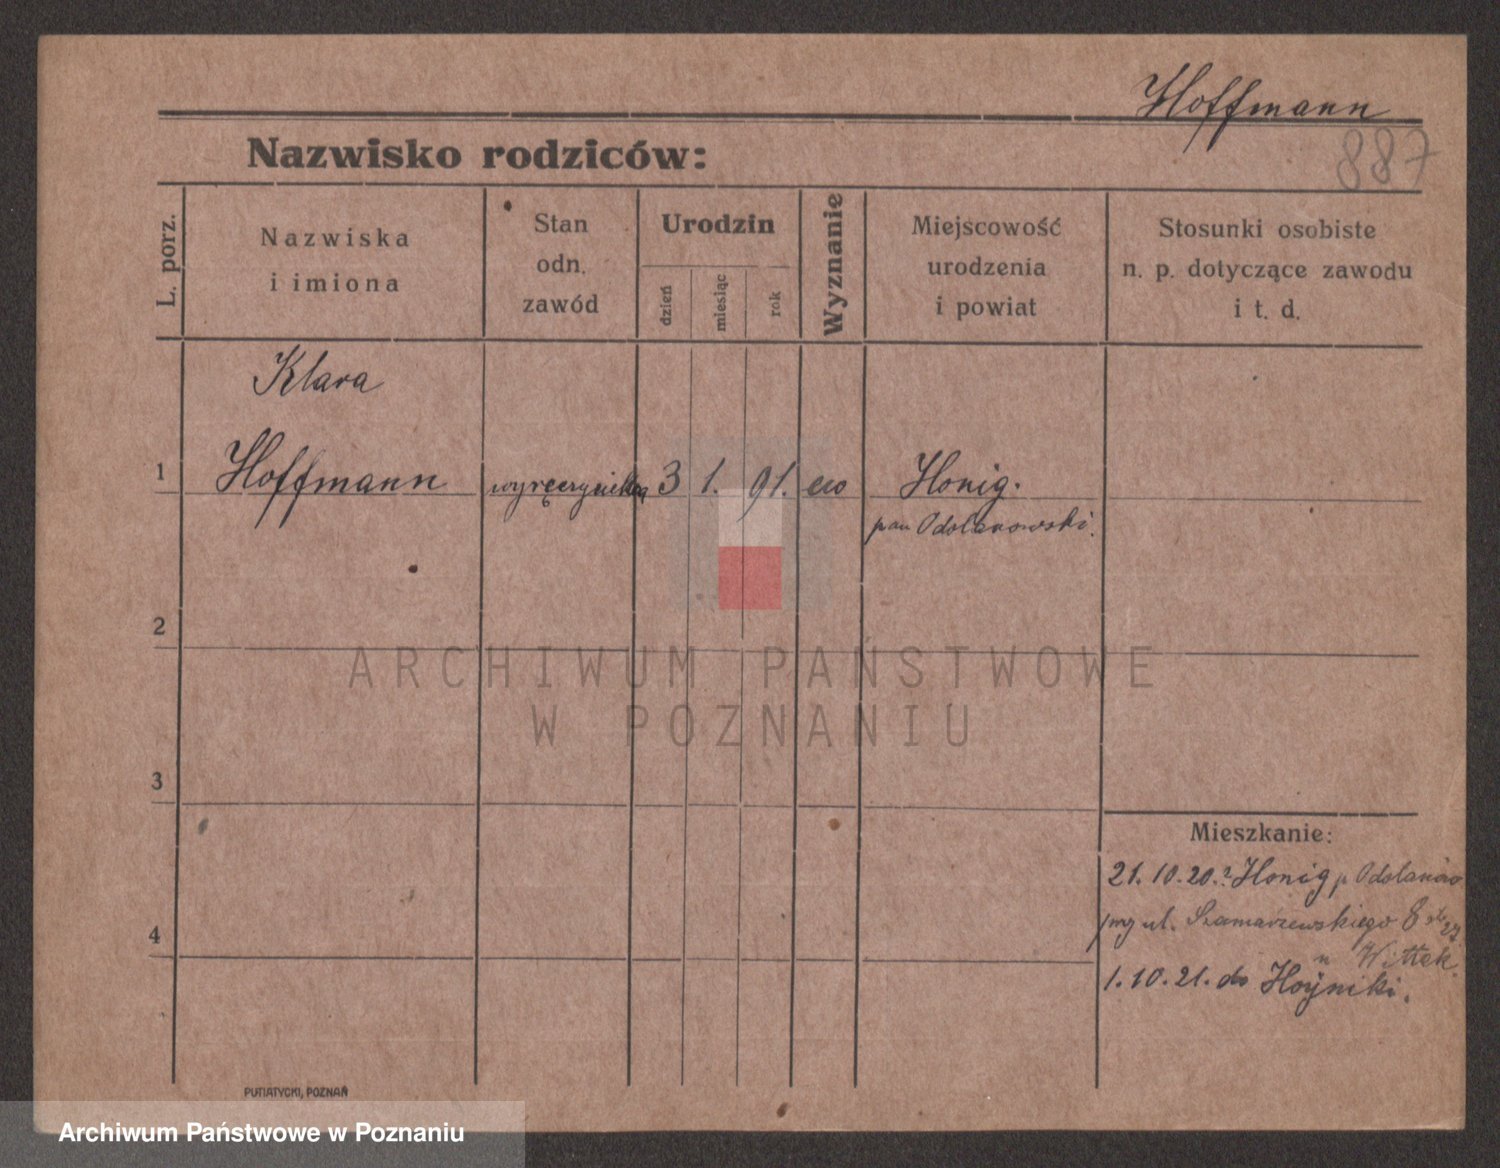 Hoffmann
887
Nazwisko rodziców:
L. porz.
Nazwiska
i imiona
Stan
odn.
zawód
Urodzin
dzień
miesiąc
rok
Wyznanie
Miejscowość
urodzenia
i powiat
Stosunki osobiste
n. p. dotyczące zawodu
i t. d.
Klara
1 Hoffmann wyręczycielka 3 1. 91. ew Honig.
pow Odolanowski.
2
ARCHIWUM PAŃSTWOWE
W POZNANIU
3
Mieszkanie:
21.10.20. z Honig p Odolanów
przy ul. Szamarzewskiego 8
4
u Wittek.
1.10.21. do Hoyniki.
PUTIATYCKI, POZNAŃ
Archiwum Państwowe w Poznaniu